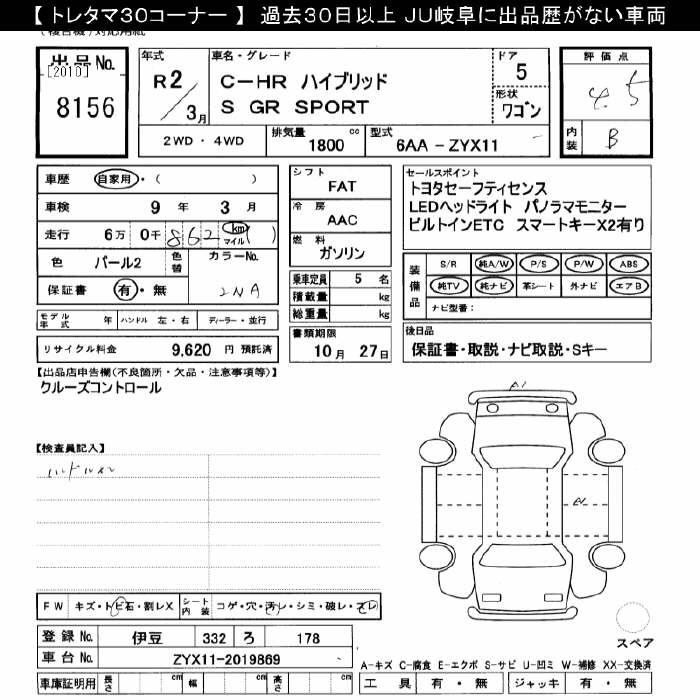 【トレタマ30コーナー】 過去30日以上 JU岐阜に出品歴がない車両
出品No.
[2010]
8156
年式
R2/3月
車名・グレード
C-HR ハイブリッド
S GR SPORT
ドア
5
形状
ワゴン
評価点
4.5
内装 B
2WD・4WD
排気量 1800 cc
型式 6AA-ZYX11
車歴 自家用・( )
車検 9年 3月
走行 6万 0千 862 (km マイル)
色 パール2
色替
カラーNo. 2NA
保証書 有・無
モデル年式 年 ハンドル 左・右 ディーラー・並行
リサイクル料金 9,620 円 預託済
シフト
FAT
冷房
AAC
燃料
ガソリン
乗車定員 5 名
積載量 kg
総重量 kg
書類期限
10月 27日
セールスポイント
トヨタセーフティセンス
LEDヘッドライト パノラマモニター
ビルトインETC スマートキーX2有り
装備品
S/R 純A/W P/S P/W ABS
純TV 純ナビ 革シート 外ナビ エアB
ナビ型番:
後日品
保証書・取説・ナビ取説・Sキー
【出品店申告欄(不良箇所・欠品・注意事項等)】
クルーズコントロール
【検査員記入】
A1
FW キズ・トビ石・割レX シート内装 コゲ・穴・汚レ・シミ・破レ・スレ
登録No. 伊豆 332 ろ 178
車台No. ZYX11-2019869
車庫証明用 長さ cm 幅 cm 高さ cm
スペア
A-キズ C-腐食 E-エクボ S-サビ U-凹ミ W-補修 XX-交換済
工具 有・無 ジャッキ 有・無